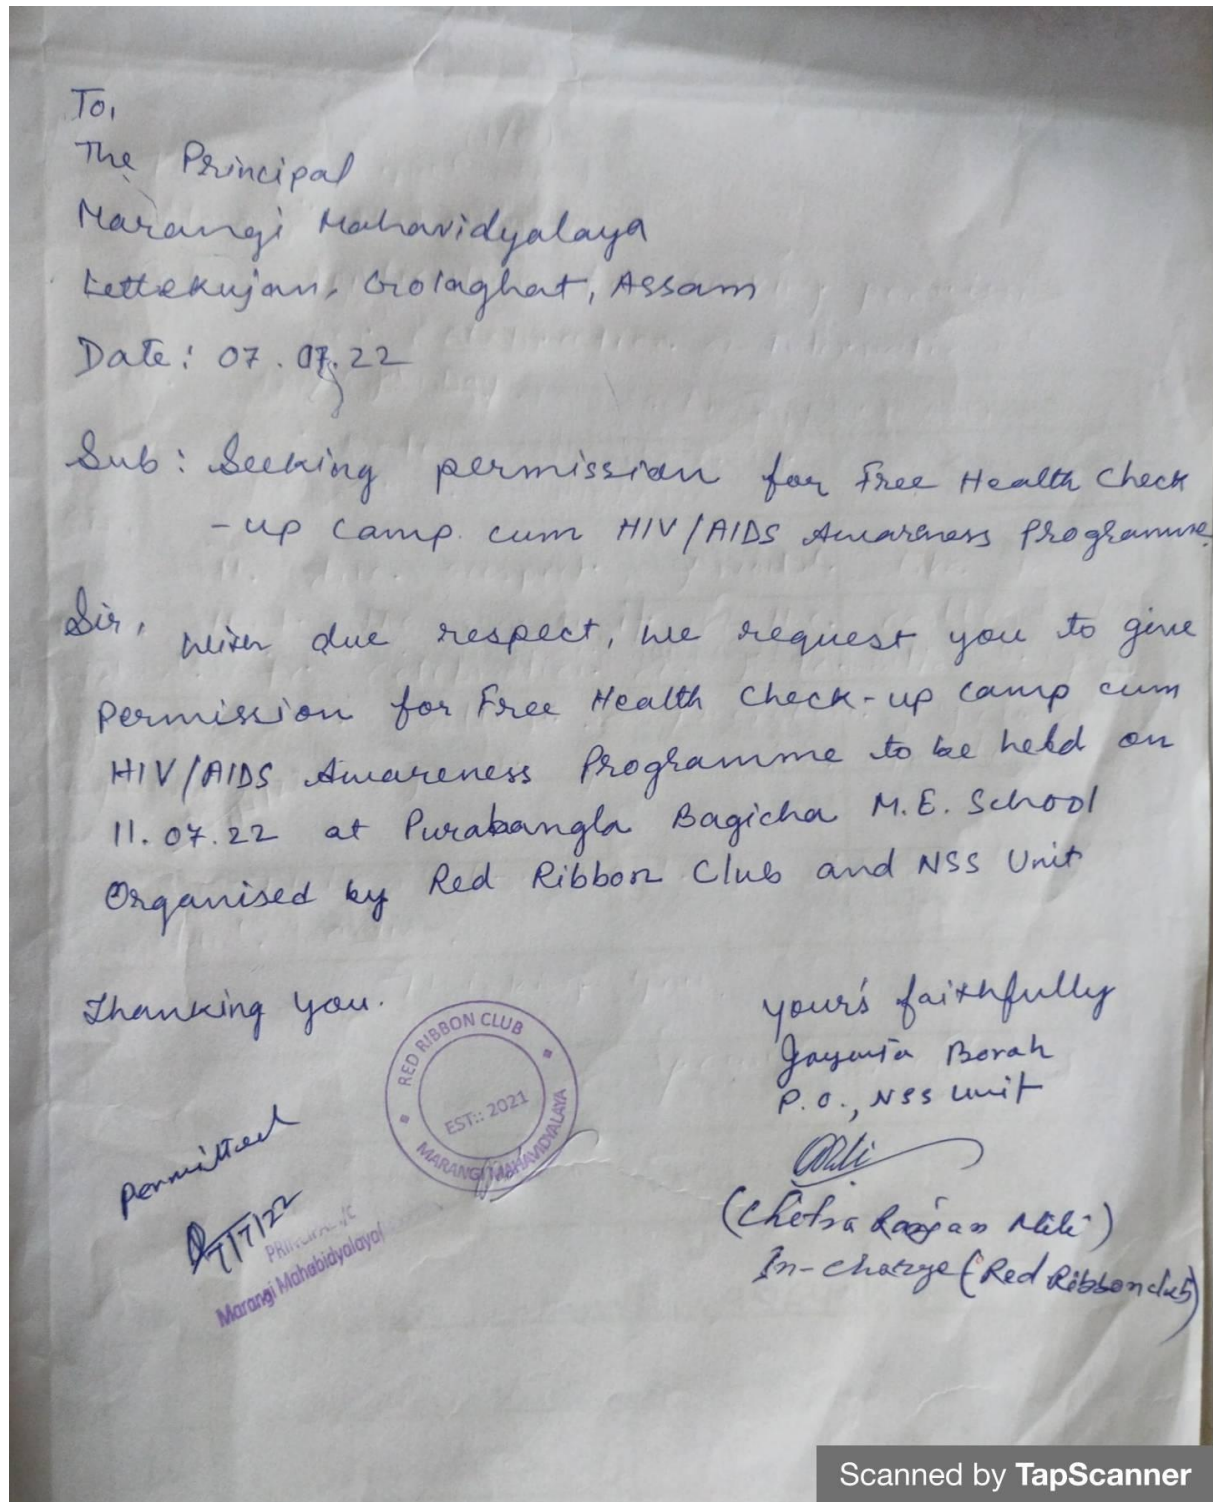 To,
The Principal
Marangi Mahavidyalaya
Lettekujan, Golaghat, Assam
Date: 07.07.22
Sub: Seeking permission for Free Health Check
-up camp cum HIV/AIDS Awareness Programme.
Sir,
With due respect, we request you to give
permission for Free Health Check-up camp cum
HIV/AIDS Awareness Programme to be held on
11.07.22 at Purabangla Bagicha M.E. School
Organised by Red Ribbon Club and NSS Unit
Thanking you.
your's faithfully
Jayanta Borah
P.O., NSS Unit
(Chetra Ranjan Mili)
In-charge (Red Ribbon club)
RED RIBBON CLUB
EST:: 2021
MARANGI MAHAVIDYALAYA
Permitted
7/7/22
PRINCIPAL I/C
Marangi Mahabidyalaya
Scanned by TapScanner